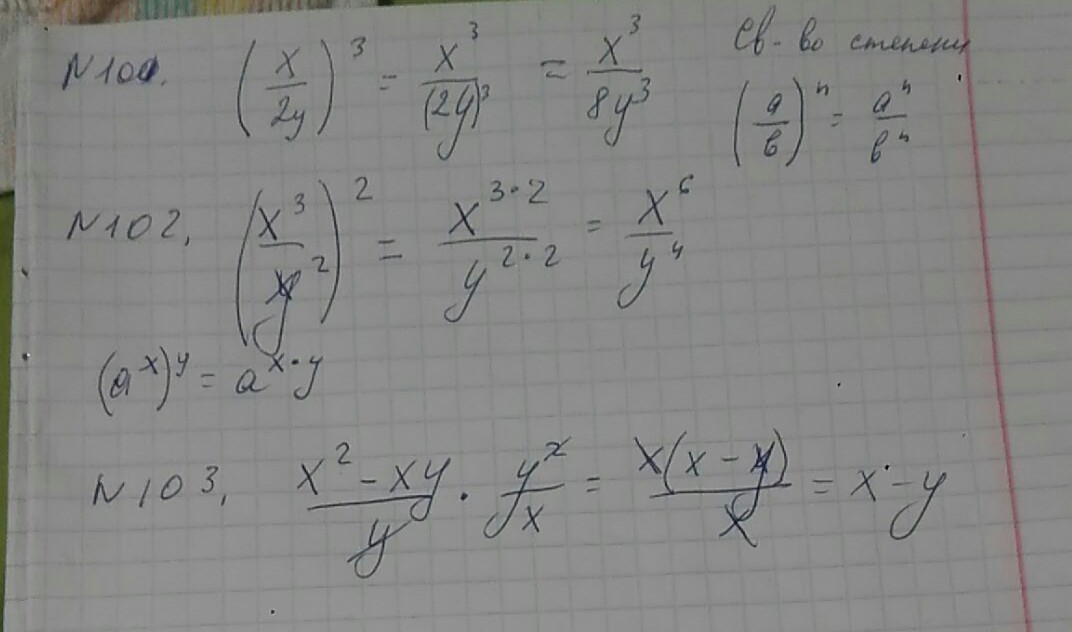 N101. (x/2y)³ = x³/(2y)³ = x³/8y³ Св-во степени
(a/в)ⁿ = aⁿ/вⁿ
N102, (x³/y²)² = x^(3·2)/y^(2·2) = x⁶/y⁴
(aˣ)ʸ = a^(x·y)
N103, (x² - xy)/y · y²/x = x(x - y)/x = x - y